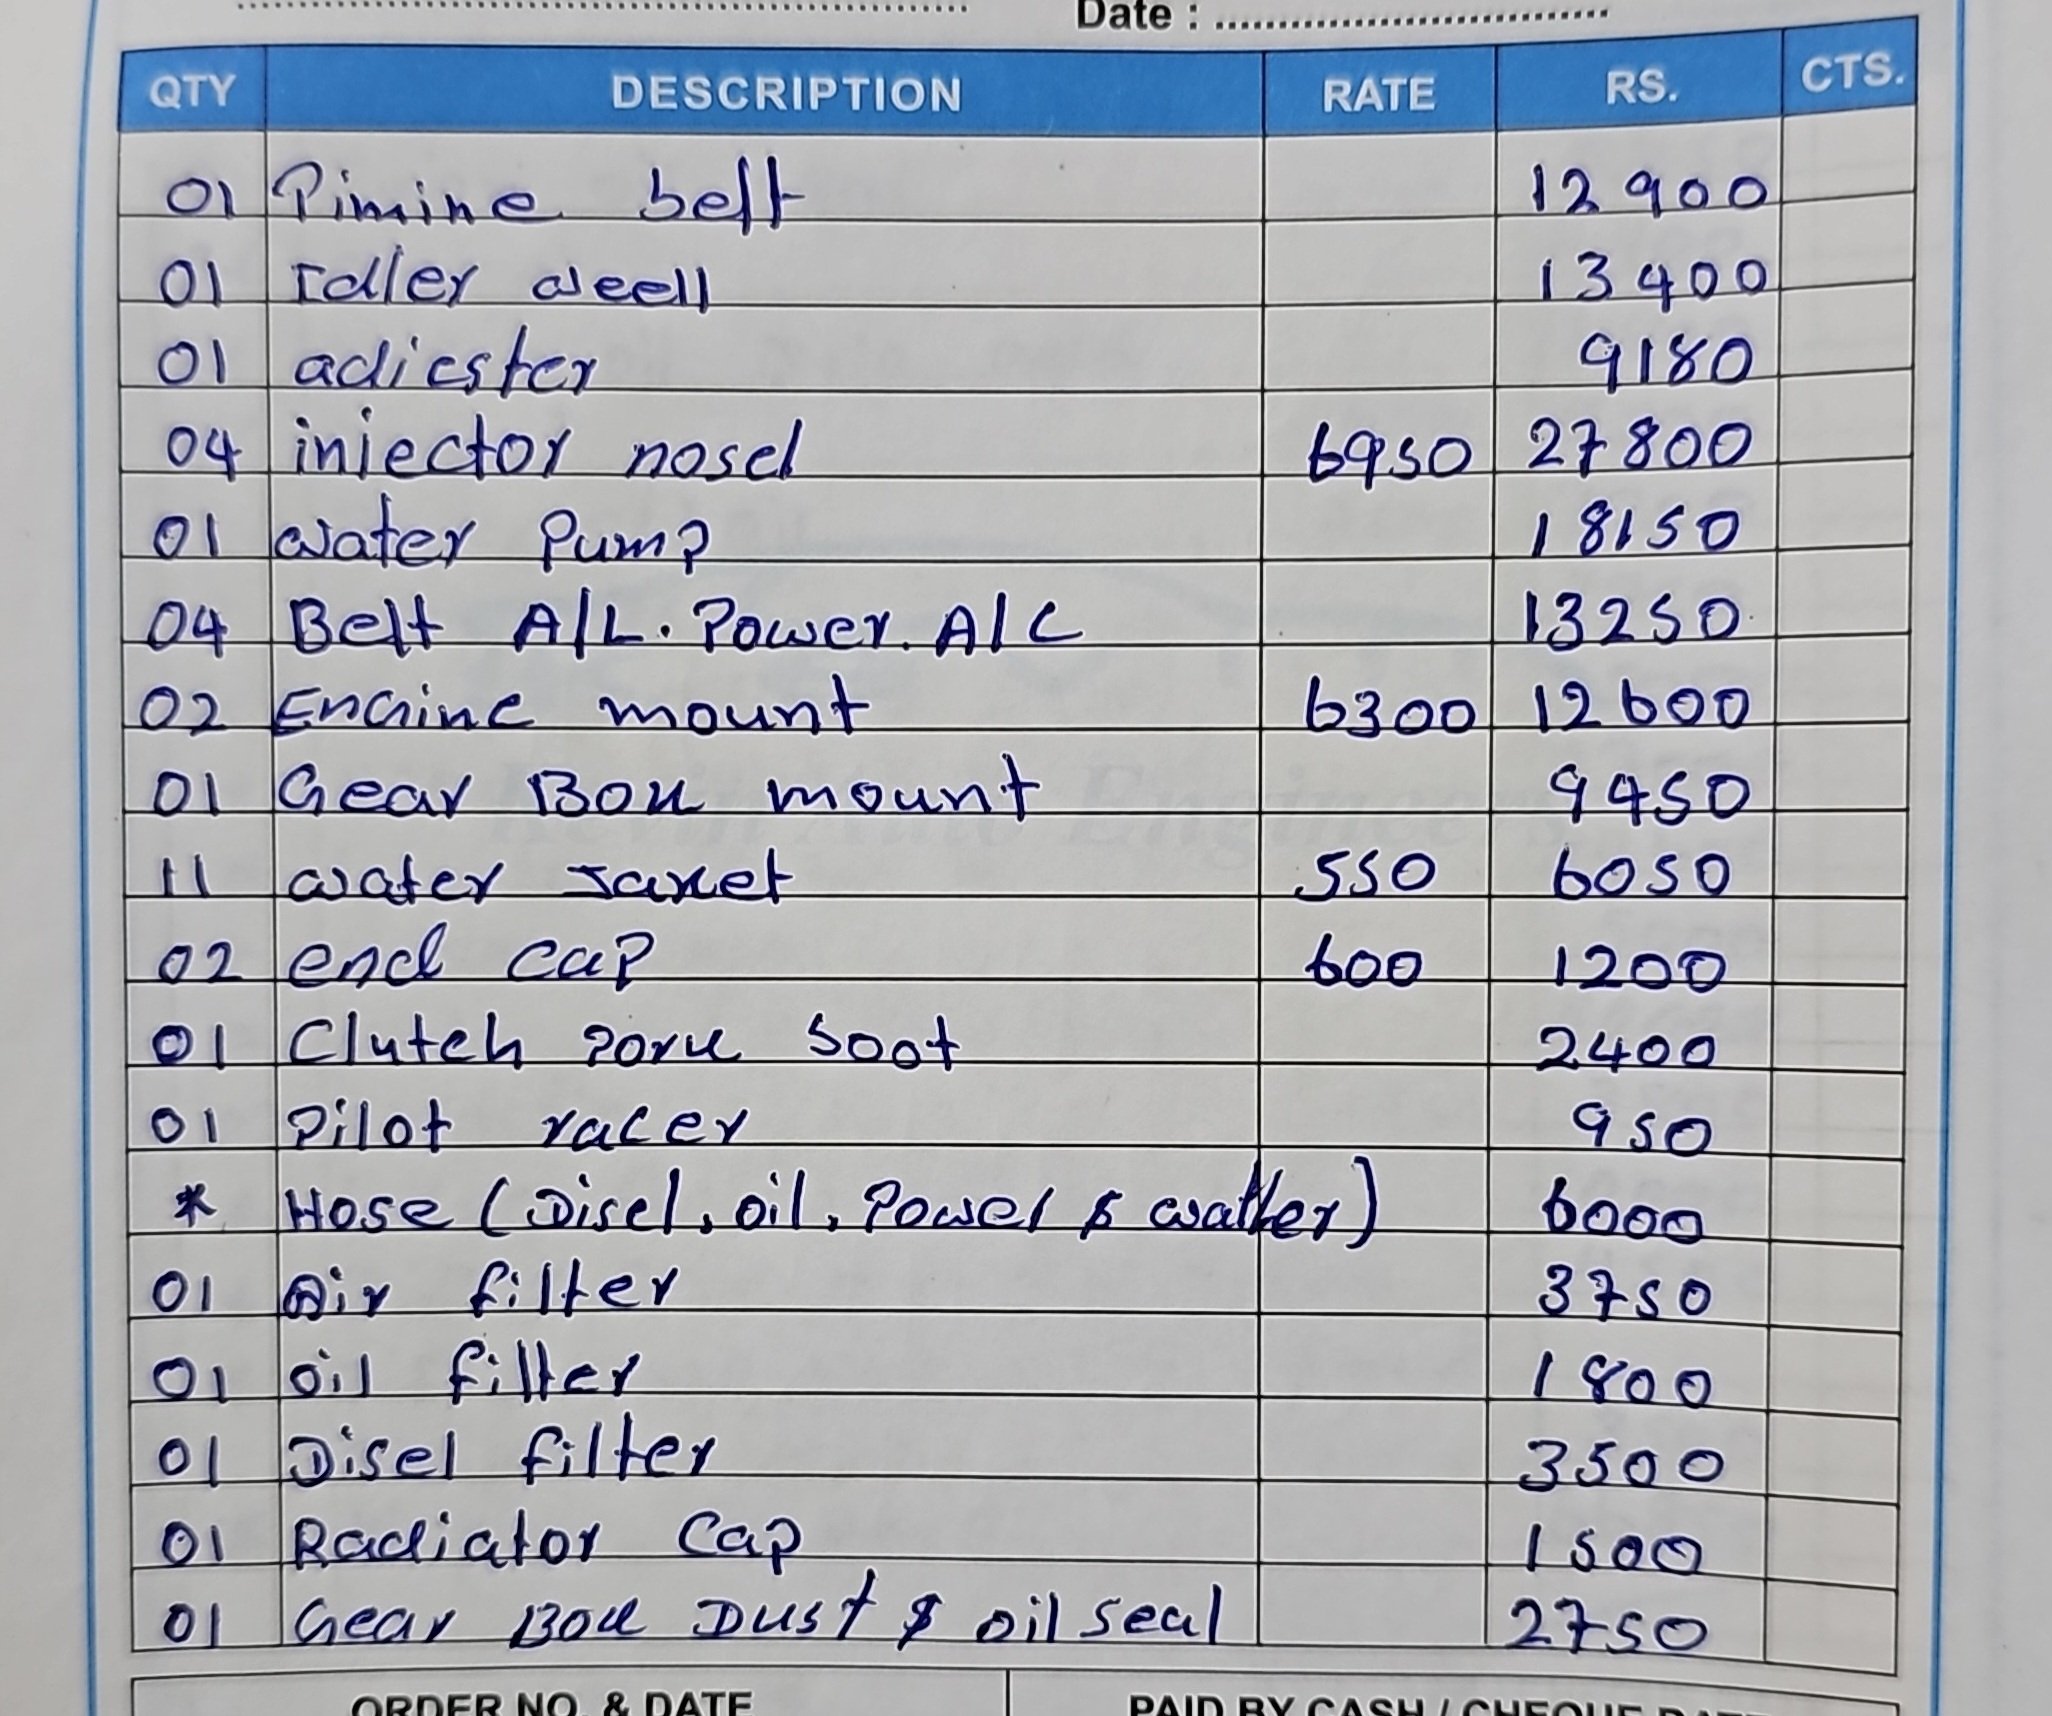 Date :
QTY DESCRIPTION RATE RS. CTS.
01 Pimine belt 12900
01 Idller weell 13400
01 adiester 9180
04 injector nosel 6950 27800
01 water Pump 18150
04 Belt A/L. Power. A/C 13250
02 Engine mount 6300 12600
01 Gear Box mount 9450
11 water Jaket 550 6050
02 end cap 600 1200
01 Clutch pork boot 2400
01 Pilot racer 950
* Hose (Disel, oil, Power & watter) 6000
01 Air filter 3750
01 oil filter 1800
01 Disel filter 3500
01 Radiator Cap 1500
01 Gear Box Dust & oil seal 2750
ORDER NO. & DATE PAID BY CASH / CHEQUE